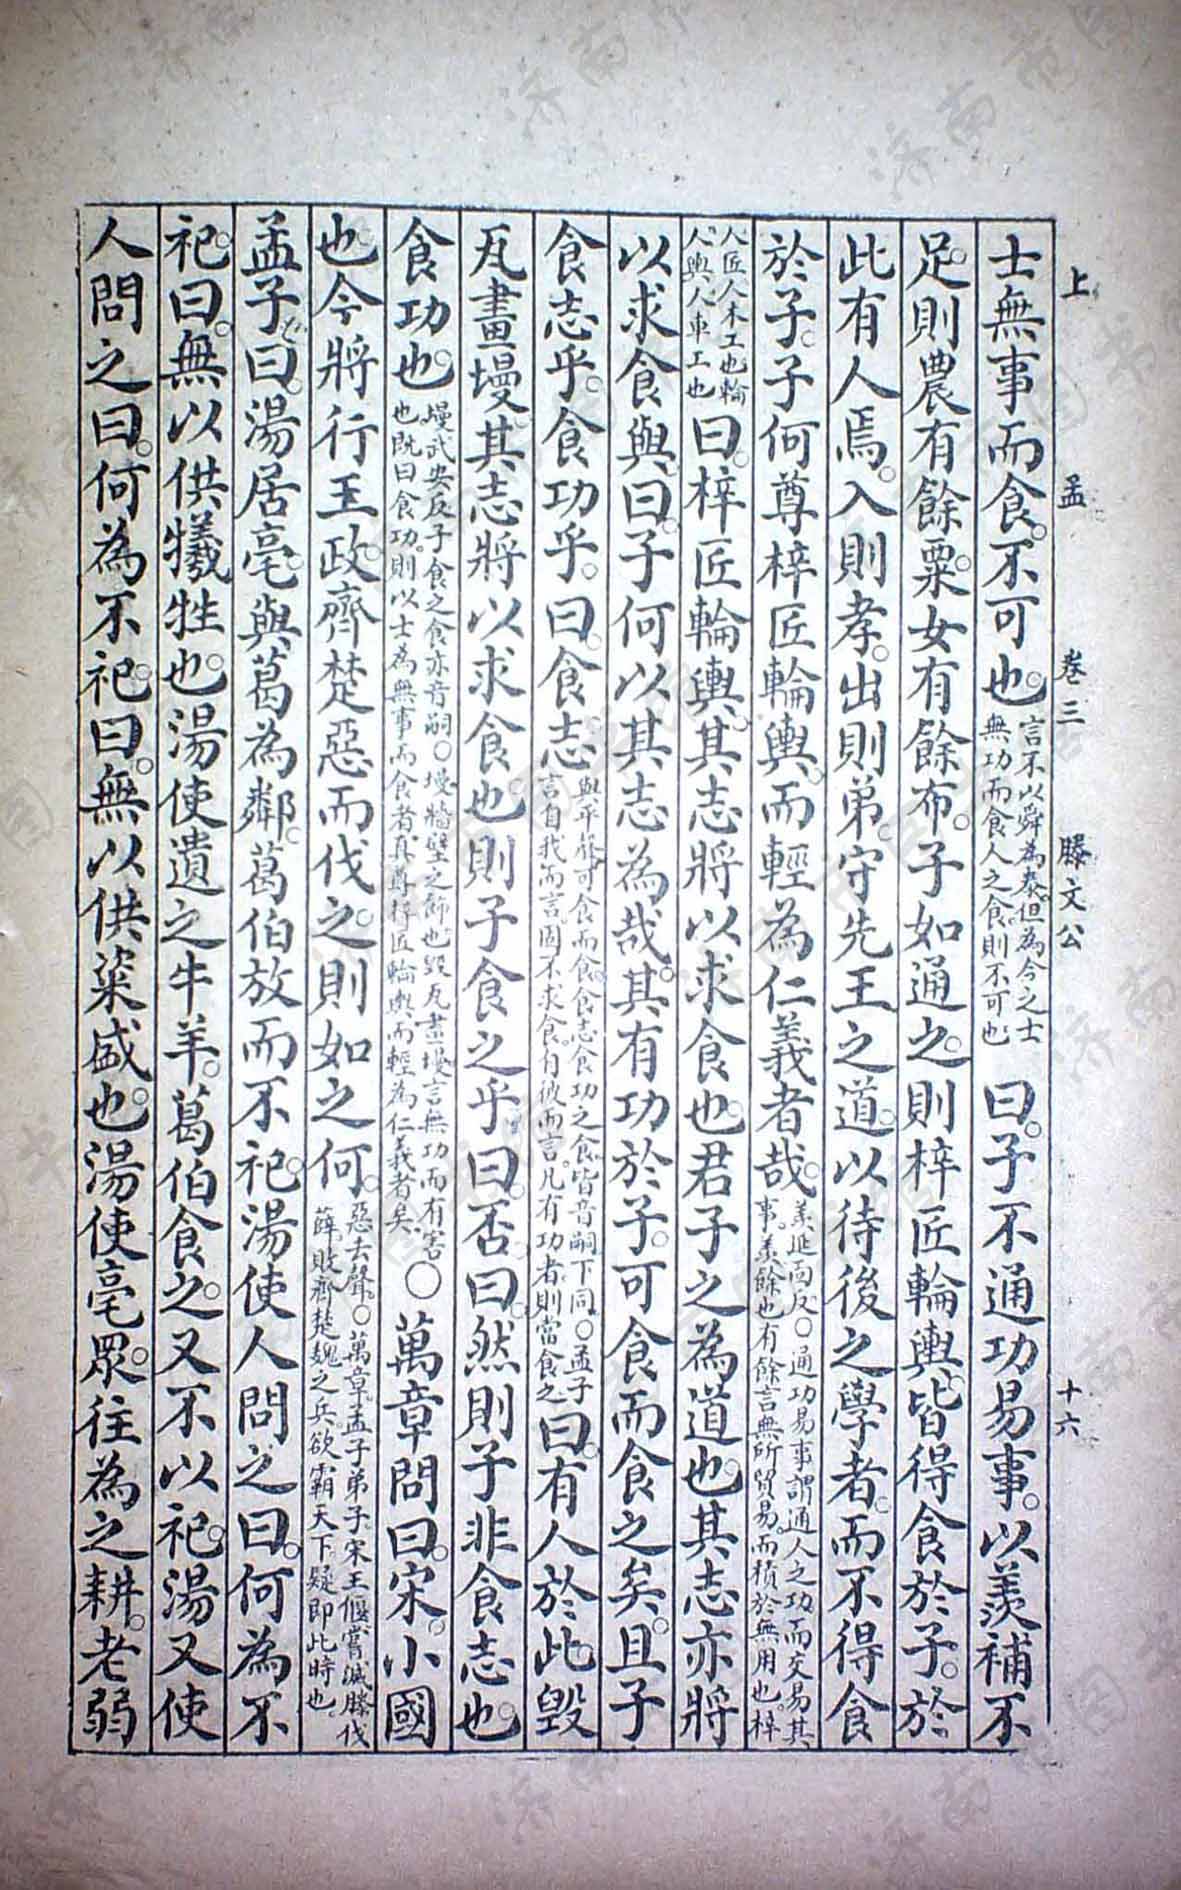 上孟 卷三 滕文公 十六
士無事而食。不可也。言不以舜為泰。但為今之士無功而食人之食。則不可也 曰。子不通功易事。以羨補不
足。則農有餘粟。女有餘布。子如通之。則梓匠輪輿。皆得食於子。於
此有人焉。入則孝。出則弟。守先王之道。以待後之學者。而不得食
於子。子何尊梓匠輪輿。而輕為仁義者哉。羨延面反。○通功易事謂通人之功而交易其事。羨餘也有餘言無所貿易。而積於無用也。梓
人匠人木工也輪人輿人車工也 曰。梓匠輪輿。其志將以求食也。君子之為道也。其志亦將
以求食與。曰。子何以其志為哉。其有功於子。可食而食之矣。且子
食志乎。食功乎。曰。食志 與平聲可食而食。食志食功之食皆音嗣下同。○孟子言自我而言。固不求食。自彼而言。凡有功者。則當食之 曰。有人於此。毀
瓦畫墁。其志將以求食也。則子食之乎。曰。否。曰。然則子非食志也。
食功也。墁武安反子食之食亦音嗣○墁牆壁之飾也毀瓦畫墁言無功而有害也既曰食功。則以士為無事而食者真尊梓匠輪輿而輕為仁義者矣。○萬章問曰。宋。小國
也。今將行王政。齊楚惡而伐之。則如之何。惡去聲。○萬章。孟子弟子。宋王偃嘗滅滕伐薛。敗齊楚魏之兵。欲霸天下。疑即此時也。
孟子曰。湯居亳。與葛為鄰。葛伯放而不祀。湯使人問之曰。何為不
祀。曰。無以供犧牲也。湯使遺之牛羊。葛伯食之。又不以祀。湯又使
人問之曰。何為不祀。曰。無以供粢盛也。湯使亳眾。往為之耕。老弱